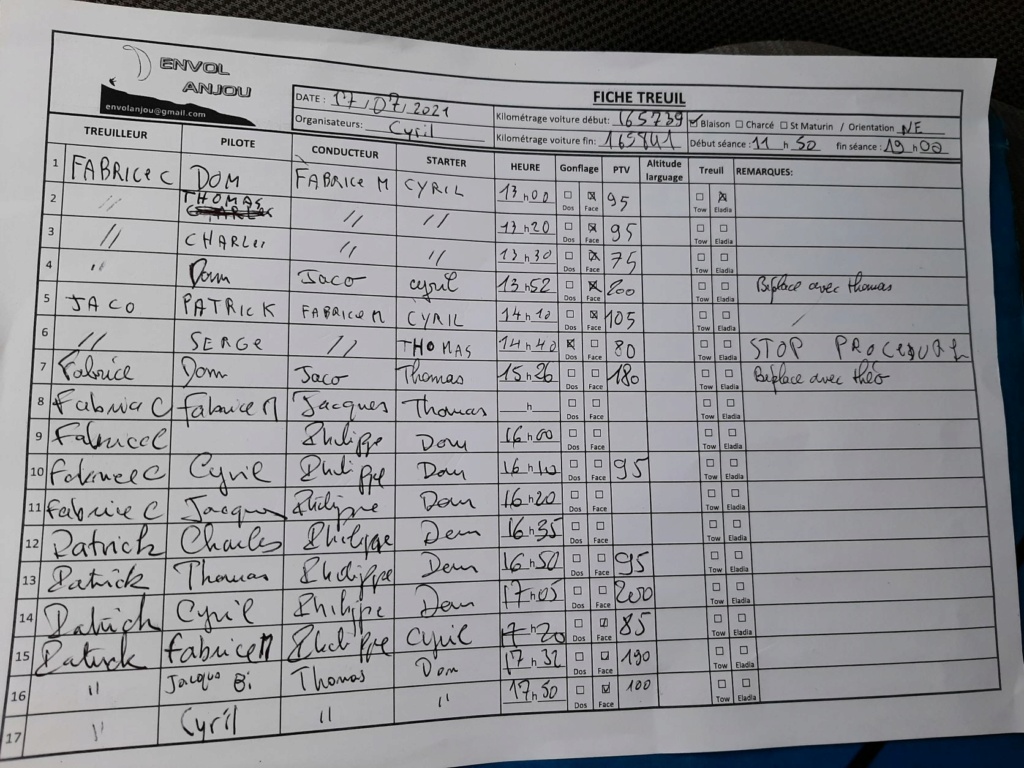 ENVOL
ANJOU
envolanjou@gmail.com
FICHE TREUIL
DATE : 17/07/2021
Organisateurs: Cyril
Kilométrage voiture début: 165739
Kilométrage voiture fin: 165841
☑ Blaison ☐ Charcé ☐ St Maturin / Orientation NE
Début séance : 11 h 50 fin séance : 19 h 00
TREUILLEUR PILOTE CONDUCTEUR STARTER HEURE Gonflage PTV Altitude larguage Treuil REMARQUES:
1 FABRICE C DOM FABRICE M CYRIL 13 h 00 ☐ Dos ☒ Face 95 ☐ Tow ☒ Eladia
2 // THOMAS // // 13 h 20 ☐ Dos ☒ Face 95 ☐ Tow ☐ Eladia
3 // CHARLES // // 13 h 30 ☐ Dos ☒ Face 75 ☐ Tow ☐ Eladia
4 // Dom Jaco cyril 13 h 52 ☐ Dos ☒ Face 200 ☐ Tow ☐ Eladia Biplace avec thomas
5 JACO PATRICK FABRICE M CYRIL 14 h 10 ☐ Dos ☒ Face 105 ☐ Tow ☐ Eladia /
6 // SERGE // THOMAS 14 h 40 ☒ Dos ☐ Face 80 ☐ Tow ☐ Eladia STOP
7 Fabrice Dom Jaco Thomas 15 h 26 ☐ Dos ☐ Face 180 ☐ Tow ☐ Eladia Biplace avec théo
8 Fabrice C Fabrice M Jacques Thomas h ☐ Dos ☐ Face ☐ Tow ☐ Eladia
9 Fabrice C Philippe Dom 16 h 00 ☐ Dos ☐ Face ☐ Tow ☐ Eladia
10 Fabrice C Cyril Philippe Dom 16 h 10 ☐ Dos ☐ Face 95 ☐ Tow ☐ Eladia
11 Fabrice C Jacques Philippe Dom 16 h 20 ☐ Dos ☐ Face ☐ Tow ☐ Eladia
12 Patrick Charles Philippe Dom 16 h 35 ☐ Dos ☐ Face ☐ Tow ☐ Eladia
13 Patrick Thomas Philippe Dom 16 h 50 ☐ Dos ☐ Face 95 ☐ Tow ☐ Eladia
14 Patrick Cyril Philippe Dom 17 h 05 ☐ Dos ☐ Face 200 ☐ Tow ☐ Eladia
15 Patrick Fabrice M Philippe Cyril 17 h 20 ☐ Dos ☑ Face 85 ☐ Tow ☐ Eladia
16 // Jacques Bi Thomas Dom 17 h 32 ☐ Dos ☑ Face 190 ☐ Tow ☐ Eladia
17 // Cyril // // 17 h 50 ☐ Dos ☑ Face 100 ☐ Tow ☐ Eladia